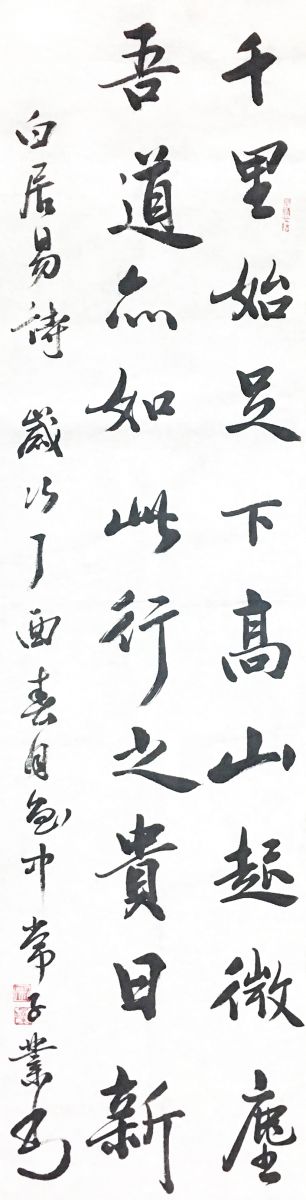 千里始足下高山起微塵
吾道亦如此行之貴日新
白居易詩 歲次丁酉春月中常子業书